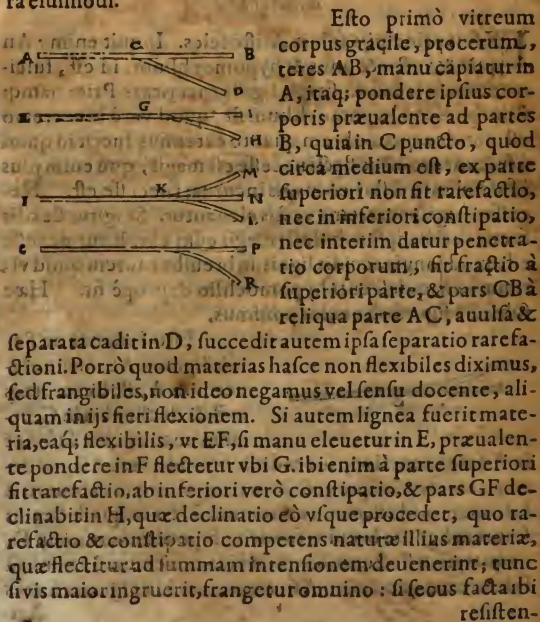 ra eiusmodi.
Esto primò vitreum
corpus gracile, procerum,
teres AB, manu capiatur in
A, itaq; pondere ipsius cor-
poris præualente ad partes
B, quia in C puncto, quod
circa medium est, ex parte
superiori non fit rarefactio,
nec in inferiori constipatio,
nec interim datur penetra-
tio corporum, fit fractio à
superiori parte, & pars CB à
reliqua parte AC, auulsa &
separata cadit in D, succedit autem ipsa separatio rarefa-
ctioni. Porrò quod materias hasce non flexibiles diximus,
sed frangibiles, non ideo negamus vel sensu docente, ali-
quam in ijs fieri flexionem. Si autem lignea fuerit mate-
ria, eaq; flexibilis, vt EF, si manu eleuetur in E, præualen-
te pondere in F flectetur vbi G. ibi enim à parte superiori
fit rarefactio, ab inferiori verò constipatio, & pars GF de-
clinabit in H, quæ declinatio eò vsque procedet, quo ra-
refactio & constipatio competens naturæ illius materiæ,
quæ flectitur ad summam intensionem deuenerint; tunc
si vis maior ingruerit, frangetur omnino : si secus facta ibi
resisten-
A C B
D
G
H
M
I K N
L
P
R